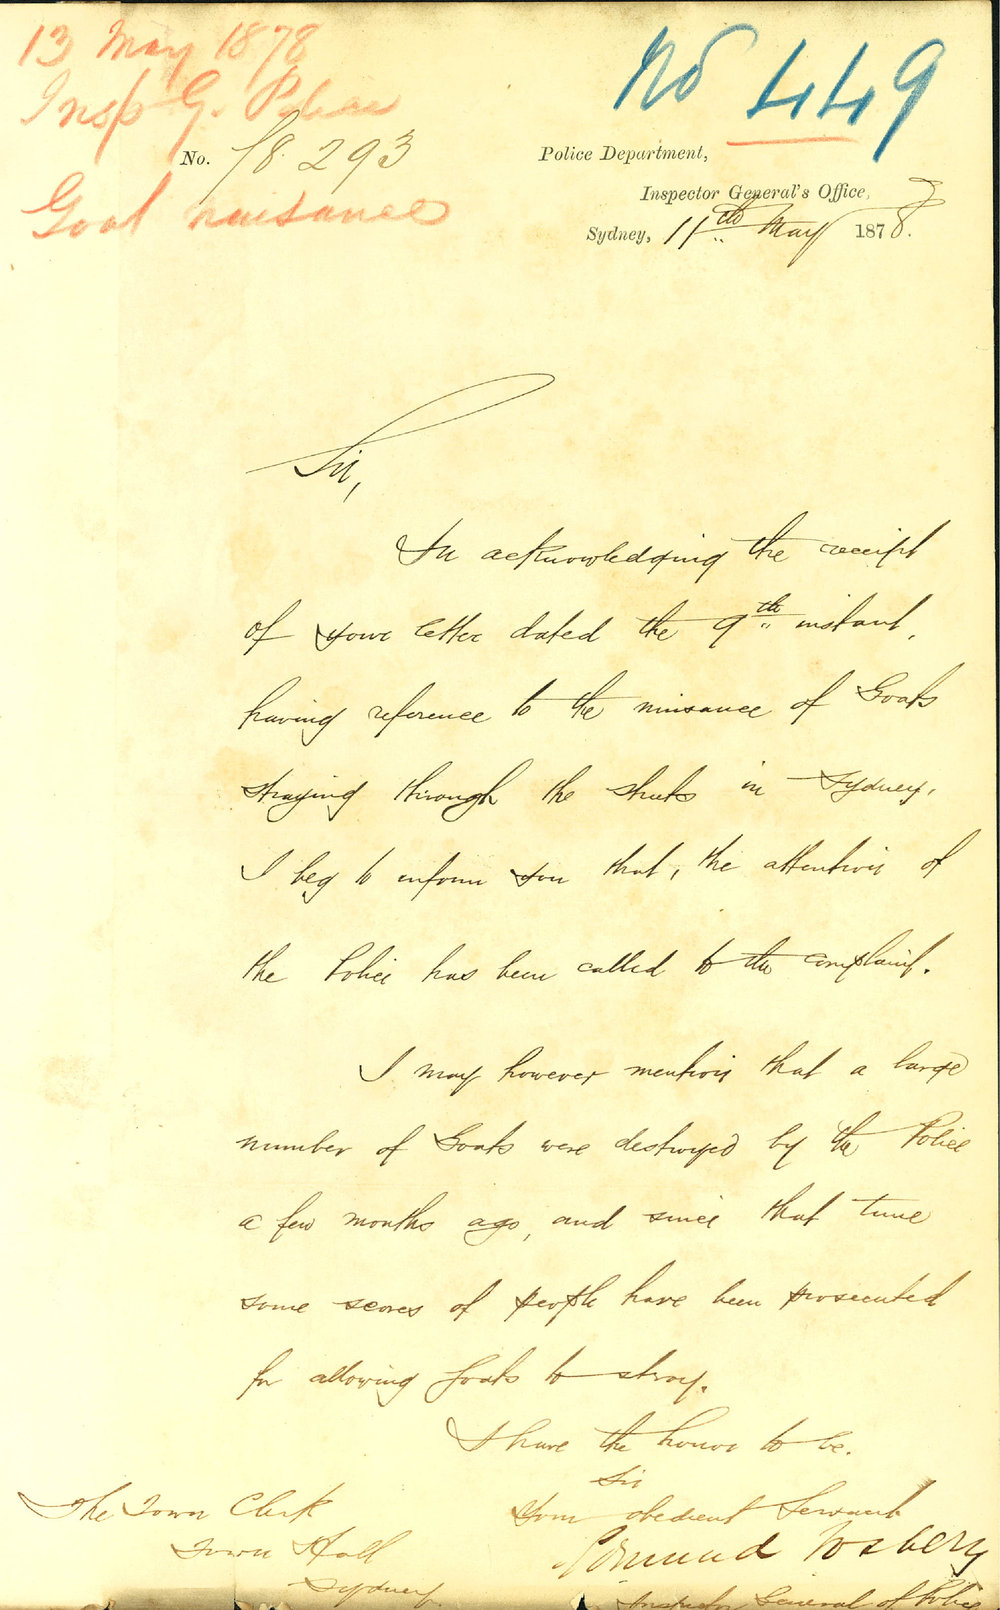 13 May 1878
Insp G. Police
Goat nuisance
No 449
No. 78.293
Police Department,
Inspector General's Office,
Sydney, 11th May 1878.
Sir,
In acknowledging the receipt
of your letter dated the 9th instant,
having reference to the nuisance of Goats
straying through the streets in Sydney,
I beg to inform you that, the attention of
the Police has been called to the complaint.
I may however mention that a large
number of Goats were destroyed by the Police
a few months ago, and since that time
some scores of people have been prosecuted
for allowing Goats to stray.
I have the honor to be.
Sir
Your obedient Servant
Edmund Fosbery
Inspector General of Police
The Town Clerk
Town Hall
Sydney.